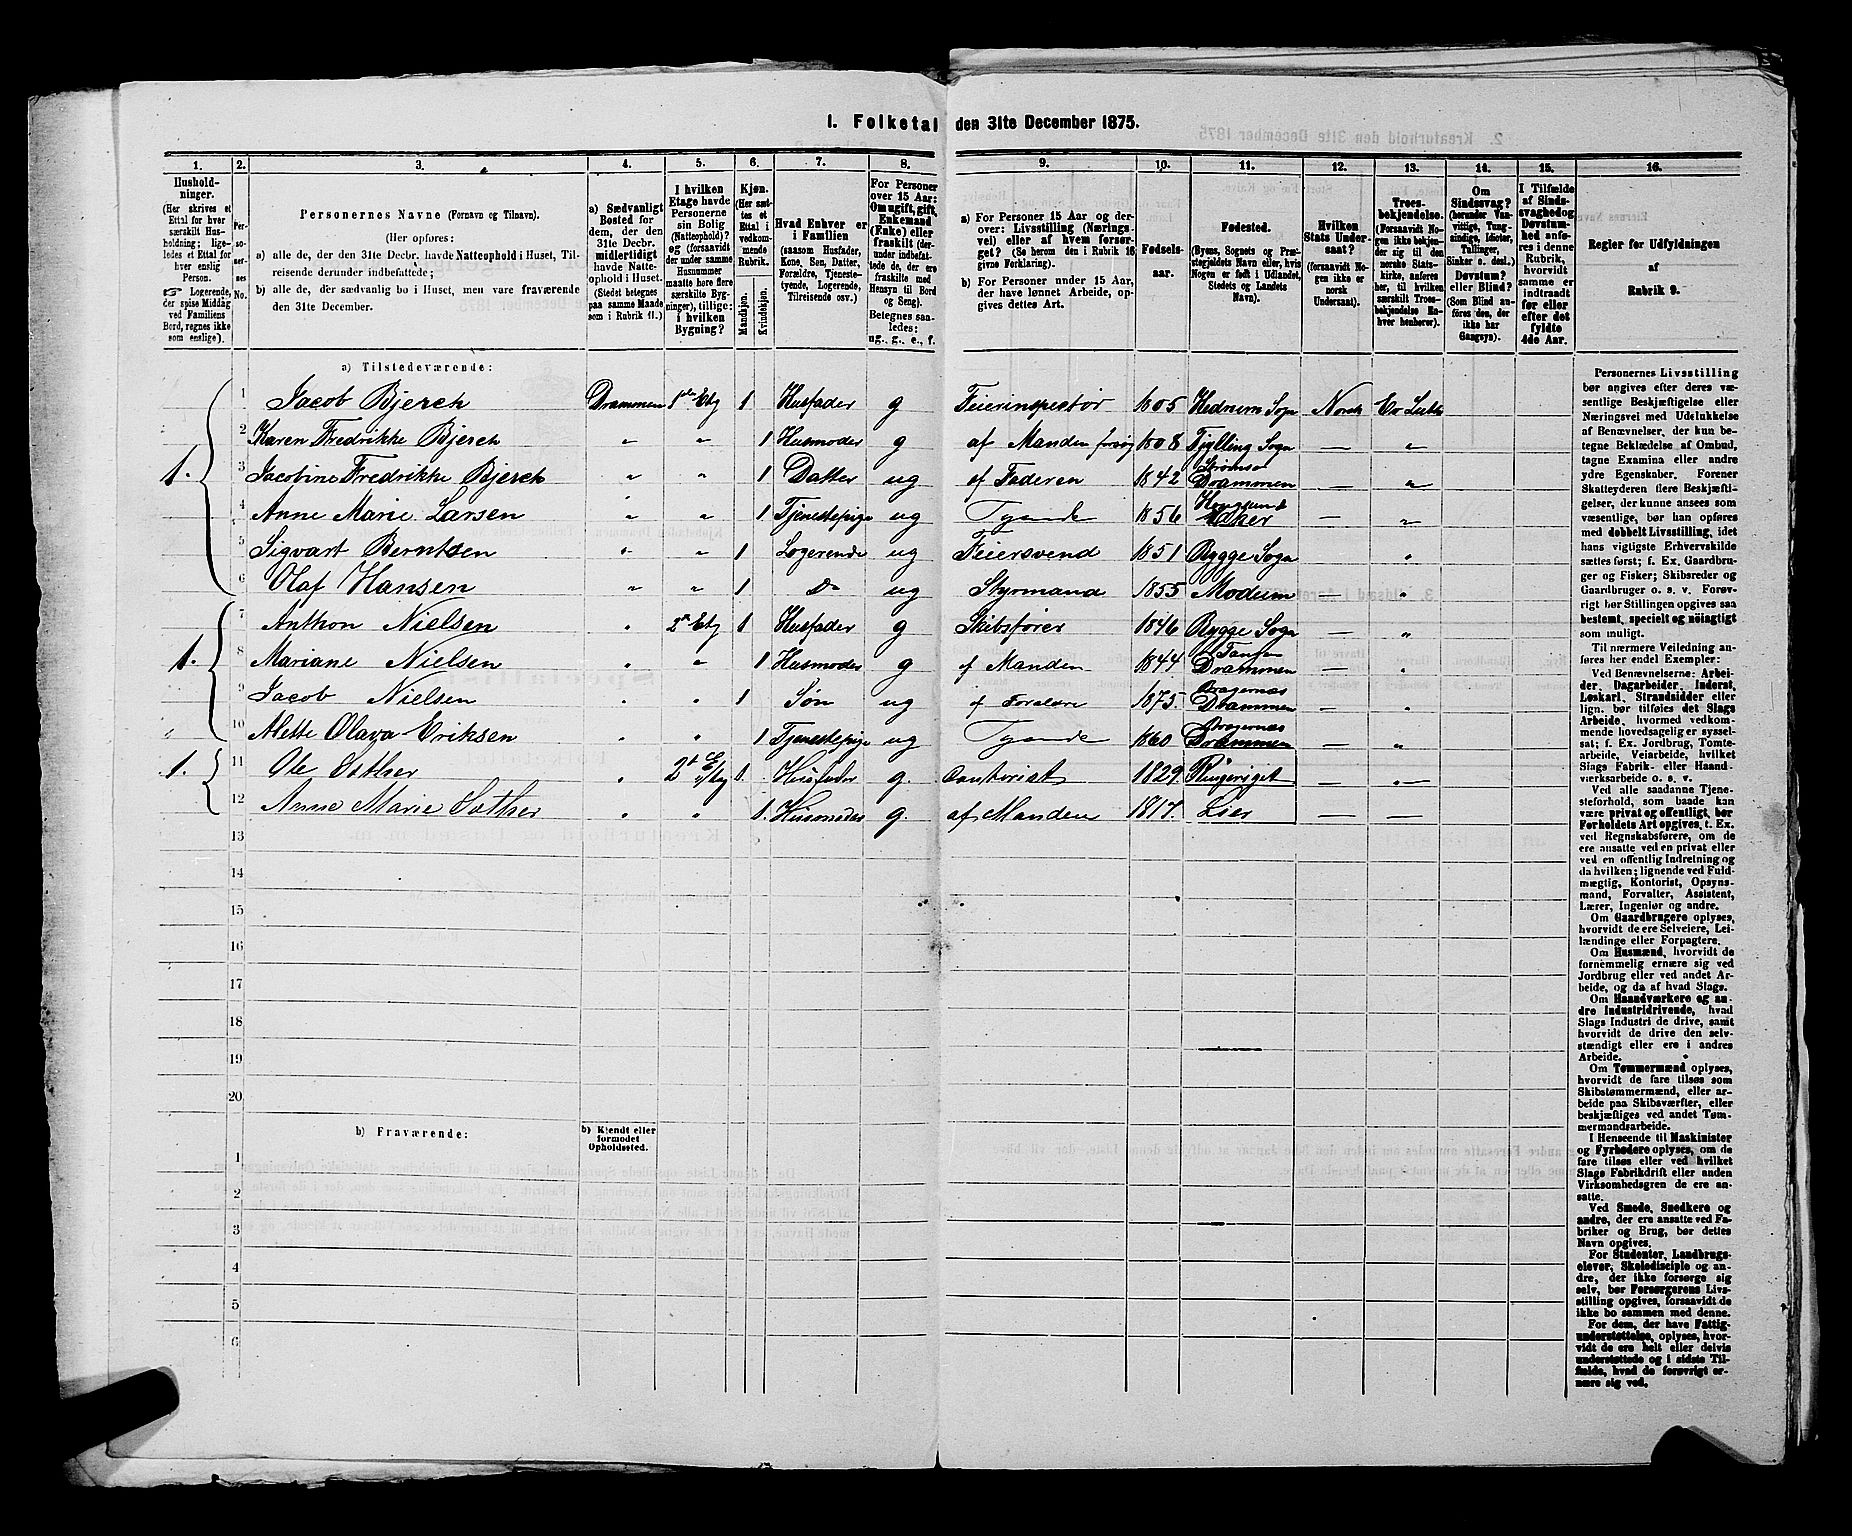 1. Folketal den 31te December 1875.
1. 2. 3. 4. 5. 6. 7. 8. 9. 10. 11. 12. 13. 14. 15. 16.
Husholdninger.
(Her skrives et
Ettal for hver
særskilt Husholdning; ligeledes
et Ettal for
hver enslig
Person.
☞ Logerende,
der spise Middag
ved Familiens
Bord, regnes ikke
som enslige).
Personernes No.
Personernes Navne (Fornavn og Tilnavn).
(Her opføres:
a) alle de, der den 31te Decbr. havde Natteophold i Huset, Tilreisende derunder indbefattede;
b) alle de, der sædvanlig bo i Huset, men vare fraværende
den 31te December.
a) Sædvanligt
Bosted for
dem, der den
31te Decbr.
midlertidigt
havde Natteophold i Huset.
(Stedet betegnes
paa samme Maade
som i Rubrik 11.)
I hvilken
Etage havde
Personerne
sin Bolig
(Natteophold)?
og (forsaavidt
der under samme
Husnummer
maatte høre flere
særskilte Bygninger), tillige:
i hvilken
Bygning?
Kjøn.
(Her sættes et
Ettal i
vedkommende
Rubrik.
Mandkjøn.
Kvindekjøn.
Hvad Enhver er
i Familien
(saasom Husfader,
Kone, Søn, Datter,
Forældre, Tjenestetyende, Logerende,
Tilreisende osv.)
For Personer
over 15 Aar:
Om ugift, gift,
Enkemand
(Enke) eller
fraskilt (derunder indbefattede de, der ere
fraskilte med
Hensyn til Bord
og Seng).
Betegnes saaledes:
ug., g., e., f.
a) For Personer 15 Aar og derover: Livsstilling (Næringsvei) eller af hvem forsørget? (Se herom den i Rubrik 16
givne Forklaring).
b) For Personer under 15 Aar,
der have lønnet Arbeide, opgives dettes Art.
Fødselsaar.
Fødested.
(Byens, Sognets og Præstegjeldets Navn eller, hvis
Nogen er født i Udlandet,
Stedets og Landets
Navn).
Hvilken
Stats Undersaat?
(forsaavidt Nogen ikke er
norsk
Undersaat).
Troesbekjendelse.
(Forsaavidt Nogen ikke bekjender sig til den
norske Statskirke, anføres
her, til hvilken
særskilt Troesbekjendelse Enhver henhører).
Om
Sindssvag?
(herunder Vanvittige, Tungsindige, Idioter,
Tullinger,
Sinker o. desl.)
Døvstum?
eller Blind?
(Som Blind anføres den, der
ikke har
Gangsyn).
I Tilfælde
af Sindssvaghed og
Døvstumhed anføres i denne
Rubrik,
hvorvidt
samme er
indtraadt
før eller
efter det
fyldte
4de Aar.
Regler for Udfyldningen
af
Rubrik 9.
a) Tilstedeværende:
1. 1 Jacob Bjerch Drammen 1ste Etg 1 Husfader g Feierinspector 1805 Norsk Ev Luth
2 Karen Fredrikke Bjerch " " 1 Husmoder g af Manden forsørg 1808 Sogn — "
3 Jacobine Fredrikke Bjerch " " 1 Datter ug af Faderen 1842 Strømsø Drammen — "
4 Anne Marie Larsen " " 1 Tjenestepige ug Tyende 1856 Hougsund Eker — "
5 Sigvart Berntsen " " 1 Logerende ug Feiersvend 1851 Rygge Sogn "
6 Olaf Hansen " " 1 Do ug Styrmand 1855 Modum — "
1. 7 Anthon Nielsen " 2n Etg 1 Husfader g Skibsfører 1846 Rygge Sogn — "
8 Mariane Nielsen " " 1 Husmoder g af Manden 1844 Tangen Drammen —
9 Jacob Nielsen " " 1 Søn ug af Forældre 1875. Bragernæs Drammen — "
10 Mette Olava Eriksen " " 1 Tjenestepige ug Tyende 1860 Bragernæs Drammen — "
1. 11 Ole Sæther " 2d Etg 1. Husfader g. Contorist 1829. Ringeriget — "
12 Anne Marie Sæther " " 1. Husmoder g. af Manden 1817. Lier — —
13
14
15
16
17
18
19
20
b) Fraværende:
b) Kjendt eller
formodet
Opholdssted.
1
2
3
4
5
6
Personernes Livsstilling
bør angives efter deres væsentlige Beskjæftigelse eller
Næringsvei med Udelukkelse
af Benævnelser, der kun betegne Beklædelse af Ombud,
tagne Examina eller andre
ydre Egenskaber. Forener
Skatteyderen flere Beskjæftigelser, der kunne ansees som
væsentlige, bør han opføres
med dobbelt Livsstilling, idet
hans vigtigste Erhvervskilde
sættes først; f. Ex. Gaardbruger og Fisker; Skibsreder og
Gaardbruger o. s. v. Forøvrigt bør Stillingen opgives saa
bestemt, specielt og nöiagtigt
som muligt.
Til nærmere Veiledning anføres her endel Exempler:
Ved Benævnelserne: Arbeider, Dagarbeider, Inderst,
Løskarl, Strandsidder eller
lign. bør tilføies det Slags
Arbeide, hvormed vedkommende hovedsagelig er sysselsat; f. Ex. Jordbrug, Tomtearbeide, Veiarbeide, hvilket
Slags Fabrik- eller Haandværksarbeide o. s. v.
Ved alle saadanne Tjenesteforhold, som baade kan
være privat og offentligt, bør
Forholdets Art opgives, t. Ex.
ved Regnskabsførere, om de
ere ansatte ved en privat eller
ved en offentlig Indretning og
da hvilken; lignende ved Fuldmægtig, Kontorist, Opsynsmand, Forvalter, Assistent,
Lærer, Ingeniør og andre.
Om Gaardbrugere oplyses,
hvorvidt de ere Selveiere, Leilændinge eller Forpagtere.
Om Husmænd, hvorvidt de
fornemmelig ernære sig ved
Jordbrug eller ved andet Arbeide, og da af hvad Slags.
Om Haandværkere og andre Industridrivende, hvad
Slags Industri de drive, samt
hvorvidt de drive den selvstændigt eller ere i andres
Arbeide.
Om Tømmermænd oplyses,
hvorvidt de fare tilsøs som
Skibstømmermænd, eller arbeide paa Skibsværfter, eller
beskjæftiges ved andet Tømmermandsarbeide.
I Henseende til Maskinister
og Fyrbødere oplyses, om de
fare tilsøs eller ved hvilket
Slags Fabrikdrift eller anden
Virksomhedsgren de ere ansatte.
Ved Smede, Snedkere og
andre, der ere ansatte ved Fabriker og Brug, bør dettes
Navn opgives.
For Studenter, Landbrugselever, Skoledisciple og andre, der ikke forsørge sig
selv, bør Forsørgerens Livsstilling opgives, forsaavidt de
ikke bo sammen med denne.
For dem, der have Fattigunderstøttelse, oplyses, hvorvidt de ere helt eller delvis
understøttede og i sidste Tilfælde, hvad de forøvrigt ernære sig ved.